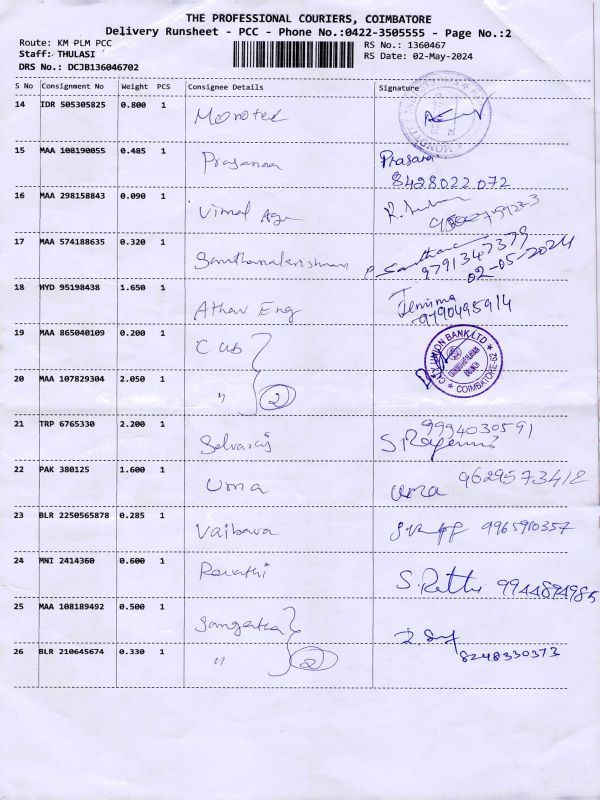 THE PROFESSIONAL COURIERS, COIMBATORE
Delivery Runsheet - PCC - Phone No.:0422-3505555 - Page No.:2
Route: KM PLM PCC
RS No.: 1360467
Staff: THULASI
RS Date: 02-May-2024
DRS No.: DCJB136046702
S No Consignment No Weight PCS Consignee Details Signature
14 IDR 505305825 0.800 1
15 MAA 108190055 0.485 1 Prasanna Prasana
8428022072
16 MAA 298158843 0.090 1 Vimal
17 MAA 574188635 0.320 1 Santhanakrishnan P. Santhana
9791347379
02-05-2024
18 HYD 95198438 1.650 1 Athav Eng Jemima
9790495914
19 MAA 865040109 0.200 1 CUB
CITY UNION BANK LTD
COIMBATORE-62
20 MAA 107829304 2.050 1 " 2
21 TRP 6765330 2.200 1 Selvaraj 9994030591
22 PAK 380125 1.600 1 Uma uma 9629573412
23 BLR 2250565878 0.285 1 Vaibava 9965910357
24 MNI 2414360 0.600 1 Revathi 9944894985
25 MAA 108189492 0.500 1 Sangeetha
26 BLR 210645674 0.330 1 " 2 8248330373